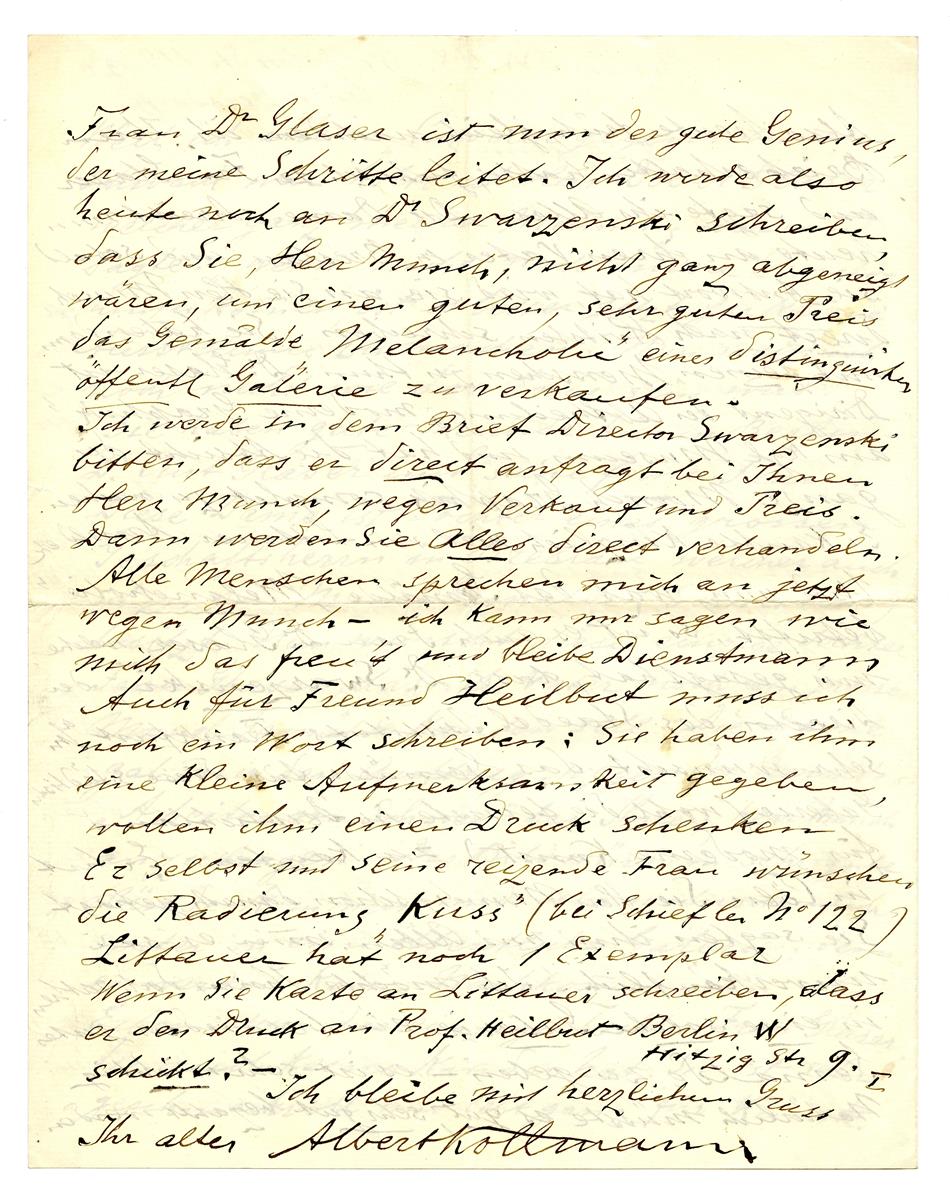 Frau Dr Glaser ist nun der gute Genius,
der meine Schritte leitet. Ich werde also
heute noch an Dr Swarzenski schreiben,
dass Sie, Herr Munch, nicht ganz abgeneigt
wären, um einen guten, sehr guten Preis
das Gemälde „Melancholie" einer distinguirten
öffentl Galerie zu verkaufen.
Ich werde in dem Brief Director Swarzenski
bitten, dass er direct anfragt bei Ihnen
Herr Munch, wegen Verkauf und Preis.
Dann werden Sie Alles direct verhandeln.
Alle Menschen sprechen mich an jetzt
wegen Munch – ich kann nur sagen wie
mich das freu't und bleibe Dienstmann
Auch für Freund Heilbut muss ich
noch ein Wort schreiben: Sie haben ihm
eine kleine Aufmerksamkeit gegeben,
wollen ihm einen Druck schenken
Er selbst und seine reizende Frau wünschen
die Radierung „Kuss" (bei Schiefler No 122)
Littauer hat noch 1 Exemplar
Wenn Sie Karte an Littauer schreiben, dass
er den Druck an Prof. Heilbut Berlin W
Hitzig Str 9. I
schickt? –
Ich bleibe mit herzlichem Gruss
Ihr alter Albert Kollmann